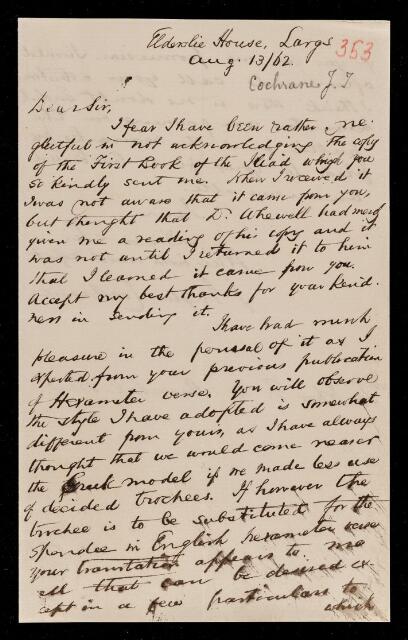 Elderslie House, Largs
Aug. 13/62.
353
Cochrane J. I
Dear Sir,
I fear I have been rather ne-
glectful in not acknowledging the copy
of the First book of the Iliad which you
so kindly sent me. When I received it
I was not aware that it came from you,
but thought that Dr. Whewell had merely
given me a reading of his copy and it
was not until I returned it to him
that I learned it came from you.
Accept my best thanks for your kind-
ness in sending it.
I have had much
pleasure in the perusal of it as I
expected from your previous publication
of Hexameter verse. You will observe
the style I have adopted is somewhat
different from yours, as I have always
thought that we would come nearer
the Greek model if we made less use
of decided trochees. If however the
trochee is to be substituted for the
Spondee in English Hexameter verse
your translation appears to me
all that can be desired ex-
cept in a few particulars to
which